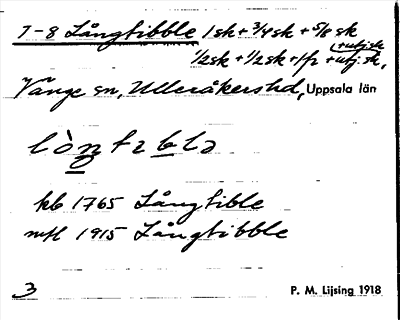 7-8 Långtibble 1 sk + 3/4 sk + 5/8 sk
1/2 sk + 1/2 sk + 1/2 + utj. sk,
+ utj. sk
Vänge sn, Ulleråkers hd, Uppsala län
lòntɩbla
kb 1765 Långtible
mtl 1915 Långtibble
3
P. M. Lijsing 1918